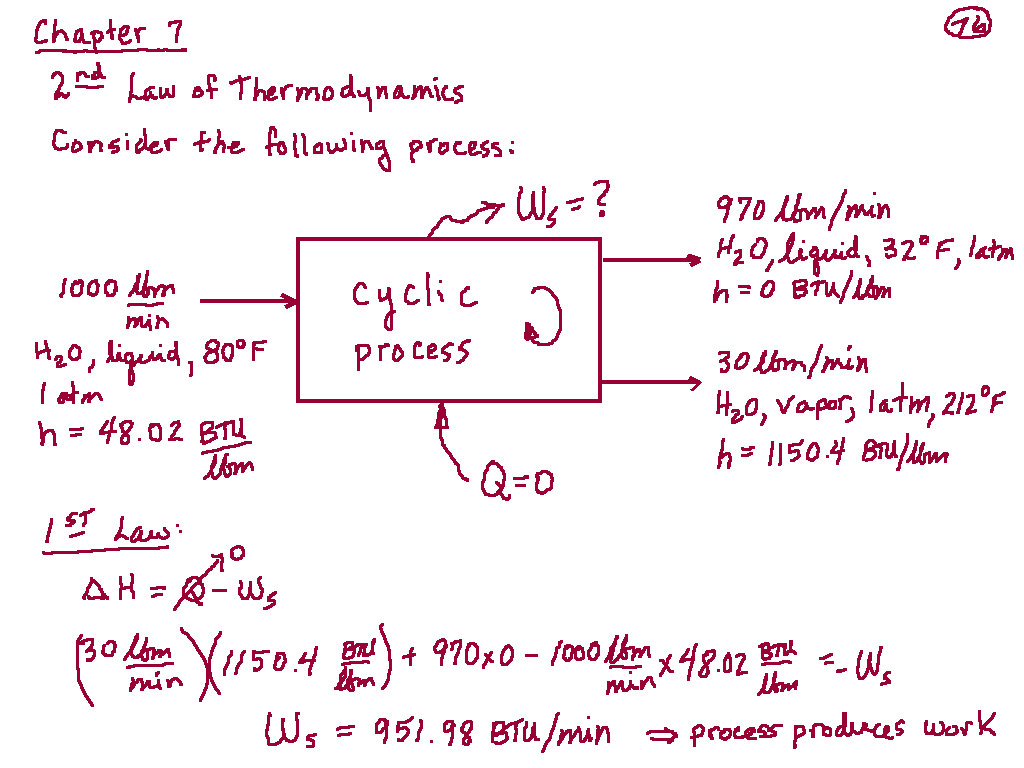 Chapter 7
76
2nd Law of Thermodynamics
Consider the following process:
Ws = ?
970 lbm/min
H2O, liquid, 32°F, 1atm
h = 0 BTU/lbm
1000 lbm/min
cyclic
process
H2O, liquid, 80°F
1 atm
h = 48.02 BTU/lbm
30 lbm/min
H2O, vapor, 1atm, 212°F
h = 1150.4 BTU/lbm
Q = 0
1ST Law:
ΔH = Q - Ws
0
(30 lbm/min)(1150.4 BTU/lbm) + 970x0 - 1000 lbm/min x 48.02 BTU/lbm = - Ws
Ws = 951.98 BTU/min ⇒ process produces work